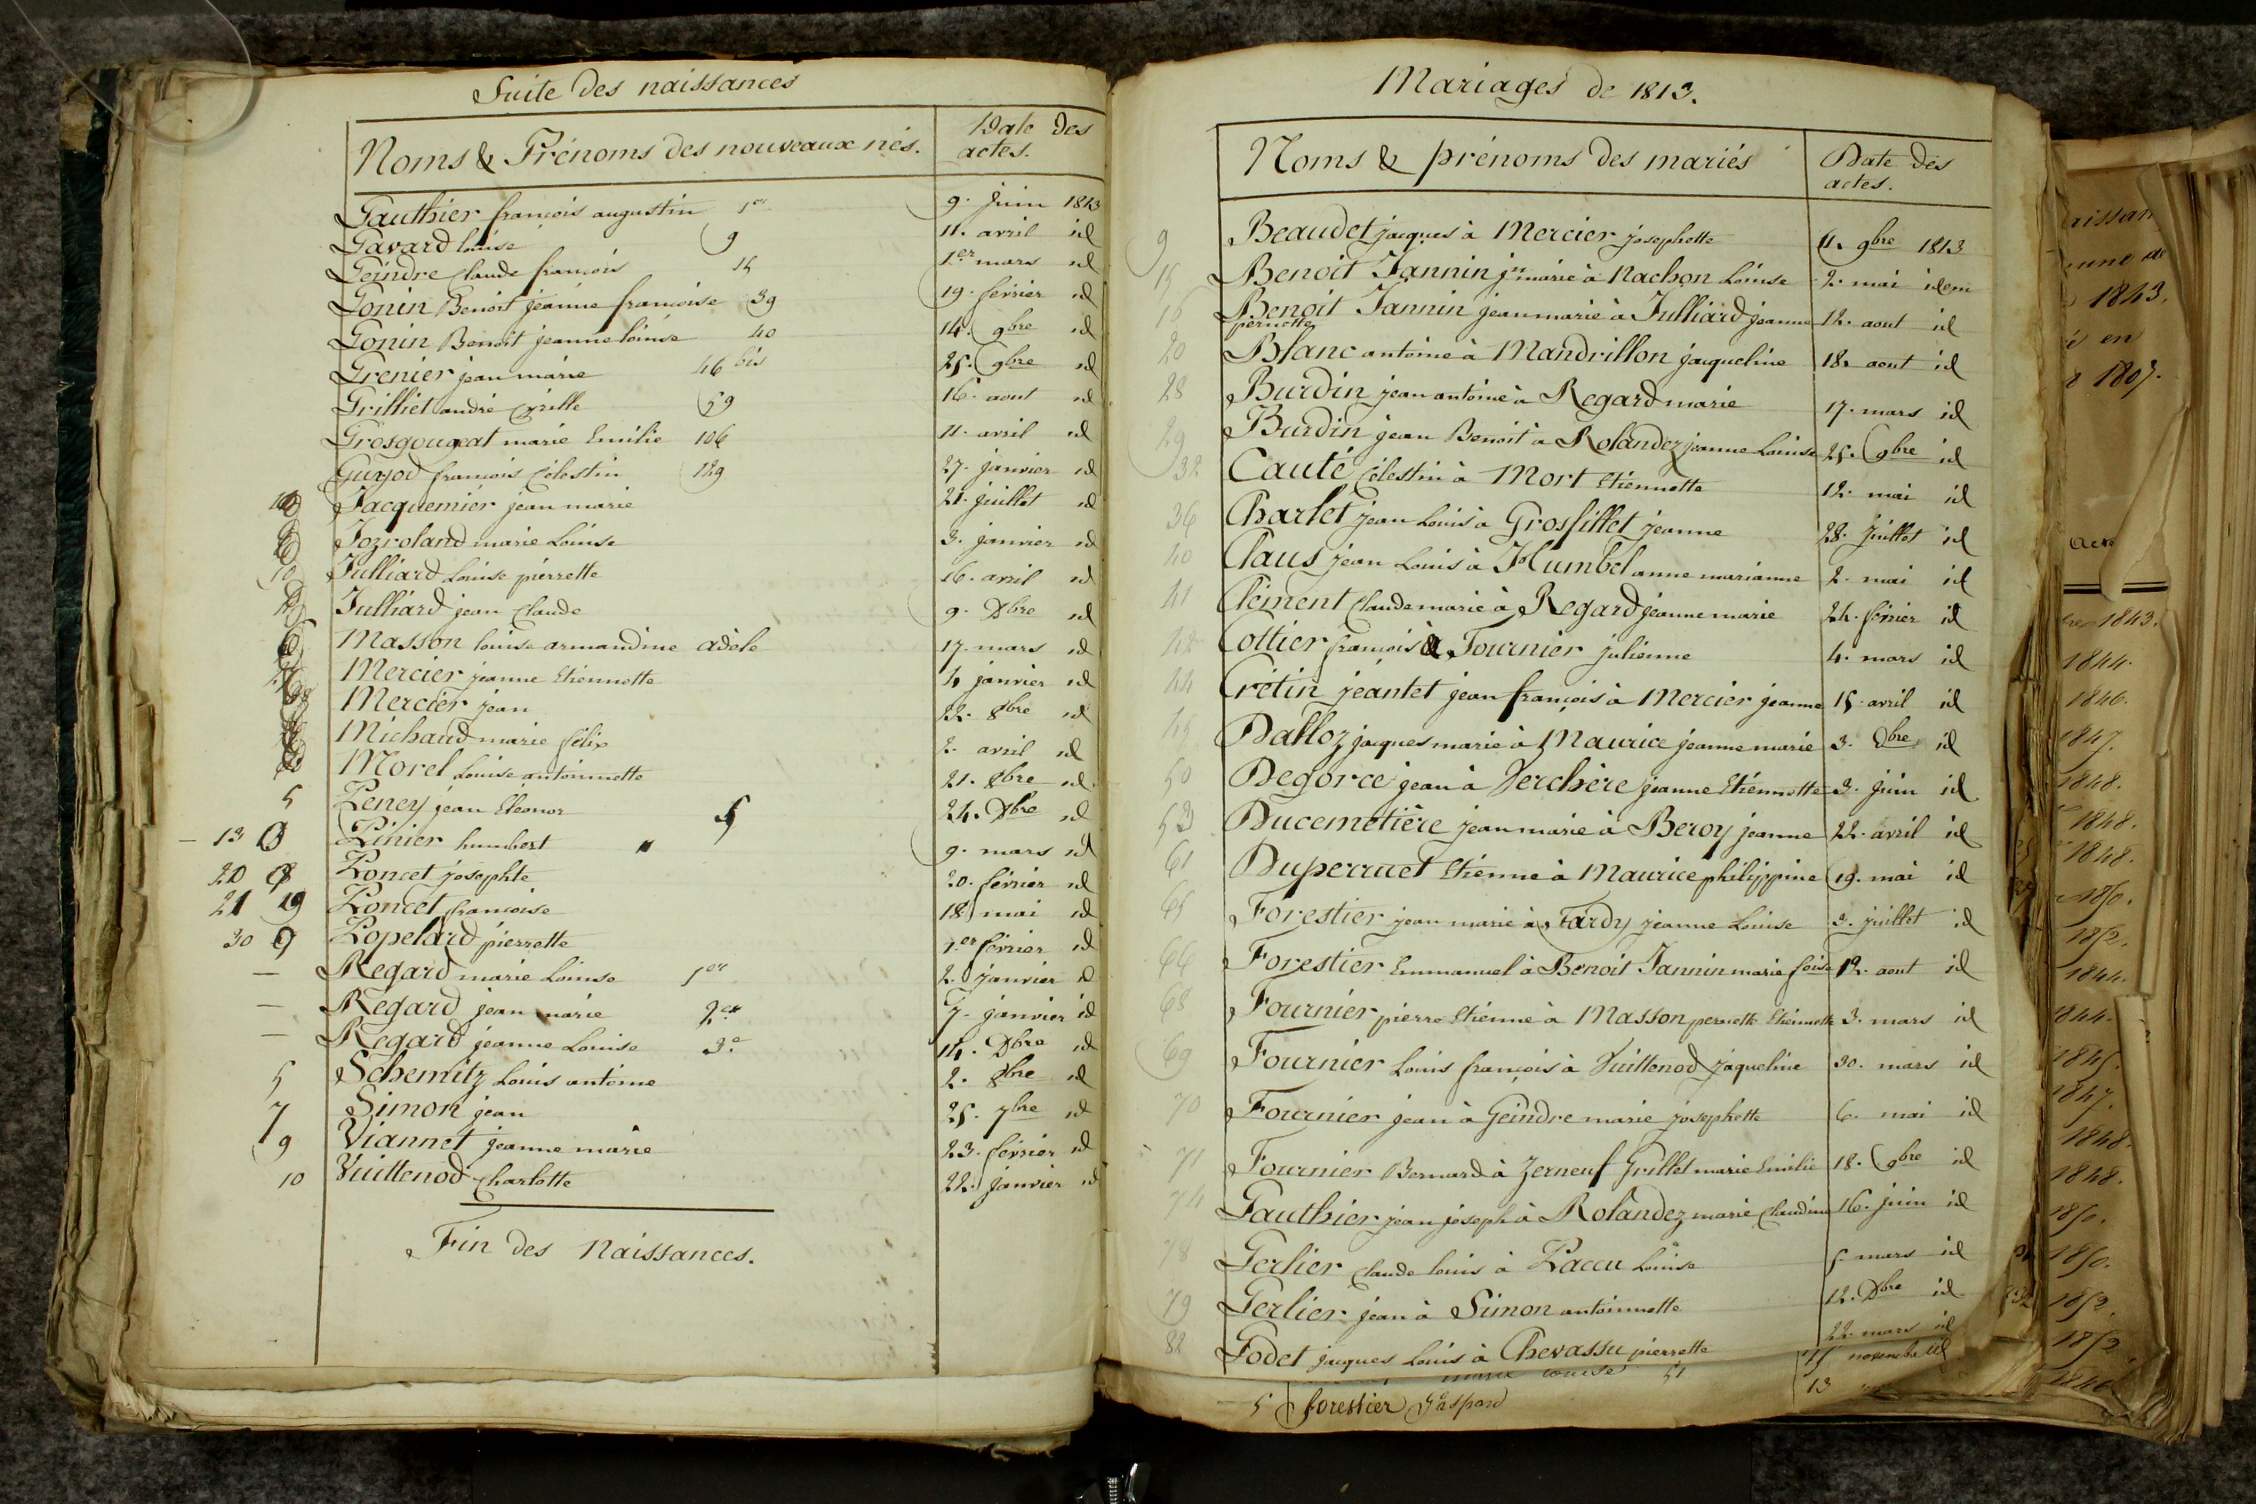 Suite des naissances
Noms & Prénoms des nouveaux nés.
Date des
actes.
Gauthier françois augustin 1er 9. juin 1813
Gavard louise 9 11. avril id
Geindre Claude françois 15 1er mars id
Gonin Benoit jeanne françoise 39 19. février id
Gonin Benoit jeanne louise 40 14. 9bre id
Grenier jean marie 46 bis 25. 9bre id
Grilliet andré Cyrille 59 16. aout id
Grosgougeat marie Emilie 106 11. avril id
Guyod françois Célestin 129 27. janvier id
Jacquemier jean marie 21. juillet id
Jozroland marie Louise 3. janvier id
10 Julliard Louise pierrette 16. avril id
Julliard jean Claude 9. Dbre id
Masson louise armandine adèle 17. mars id
Mercier jeanne Etiennette 4 janvier id
Mercier jean 22. 8bre id
Michaud marie félix 2. avril id
Morel Louise antoinnette 21. 8bre id
5 Peney jean Eléonor 5 24. Dbre id
13 Pinier humbert 9. mars id
20 8 Poncet josephte 20. février id
21 19 Poncet françoise 18 mai id
30 9 Popelard pierrette 1.er février id
— Regard marie Louise 1er 2. janvier id
— Regard jean marie 2e 7. janvier id
— Regard jeanne Louise 3.e 14. Dbre id
5 Schemitz Louis antoine 2. 8bre id
7 Simon jean 25. 7bre id
9 Viannet jeanne marie 23. février id
10 Vuittenod Charlotte 22. janvier id
Fin des Naissances.
Mariages de 1813.
Noms & prénoms des mariés
Date des
actes.
9 Beaudet jacques à Mercier josephette 11. 9bre 1813
15 Benoit Jannin jn marie à Nachon Louise 2. mai idem
16 Benoit Jannin jean marie à Julliard jeanne 12. aout id
pernette
20 Blanc antoine à Mandrillon jacqueline 18. aout id
28 Burdin jean antoine à Regard marie 17. mars id
29 Burdin jean Benoit à Rolandez jeanne Louise 25. 9bre id
32 Cauté Célestin à Mort Etiennette 12. mai id
36 Charlet jean Louis à Grosfillet jeanne 28. juillet id
40 Claus jean Louis à Humbel anne marianne 2. mai id
41 Clément Claude marie à Regard jeanne marie 24. février id
42 Cottier françois à Fournier julienne 4. mars id
44 Crétin jeantet jean françois à Mercier jeanne 15. avril id
45 Dalloz jacques marie à Maurice jeanne marie 3. Dbre id
50 Degorce jean à Verchère jeanne Etiennette 3. juin id
53 Ducemetière jean marie à Beroy jeanne 22. avril id
61 Duperruet Etienne à Maurice philippine 19. mai id
65 Forestier jean marie à Tardy jeanne Louise 3. juillet id
66 Forestier Emmanuel à Benoit Jannin marie foise 12. aout id
68 Fournier pierre Etienne à Masson pernette Etiennette 3. mars id
69 Fournier Louis françois à Vuittenod jaqueline 30. mars id
70 Fournier jean à Geindre marie josephette 6. mai id
71 Fournier Bernard à Zerneuf Grillet marie Emilie 18. 9bre id
74 Gauthier jean joseph à Rolandez marie Claudine 16. juin id
78 Gerlier Claude louis à Paccu Louise 5 mars id
79 Gerlier jean à Simon antoinnette 12. Dbre id
82 Godet jacques Louis à Chevassu pierrette 22 mars id
marie louise 51
5 forestier Gaspard 13
1843.
en
1807.
1843.
1844.
1846.
1847.
1848.
1848.
1848.
1850.
1852.
1844.
1844.
1845.
1847.
1848.
1848.
1850.
1850.
1852.
1852